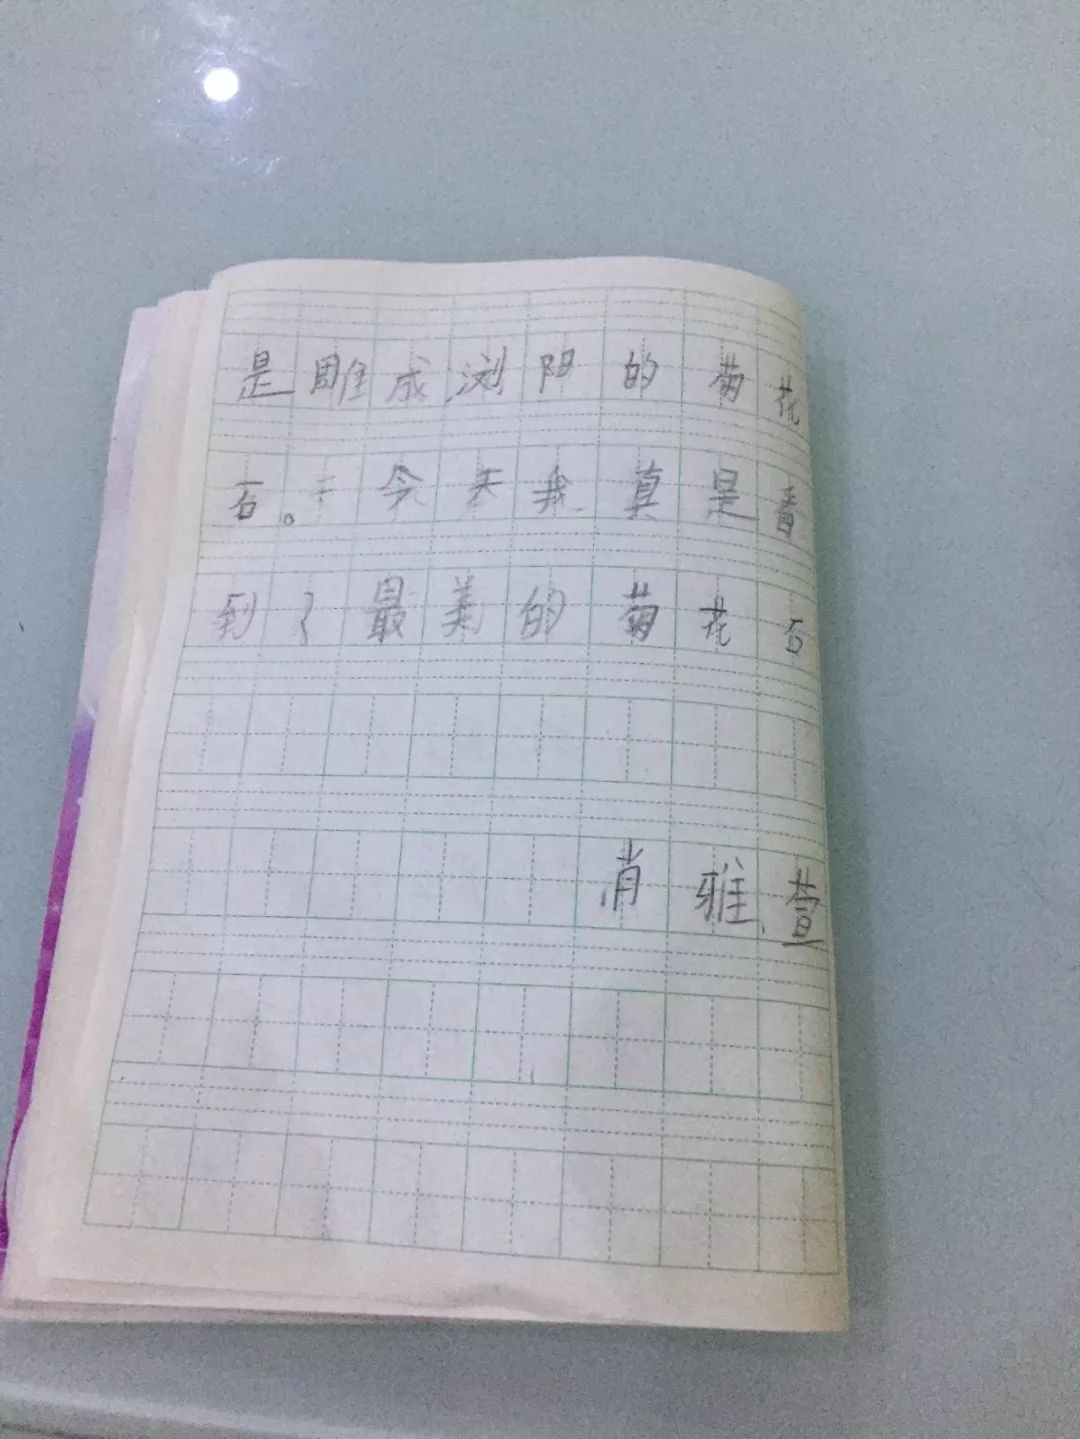 是雕成浏阳的菊花
石。今天我真是看
到了最美的菊花石
肖雅萱